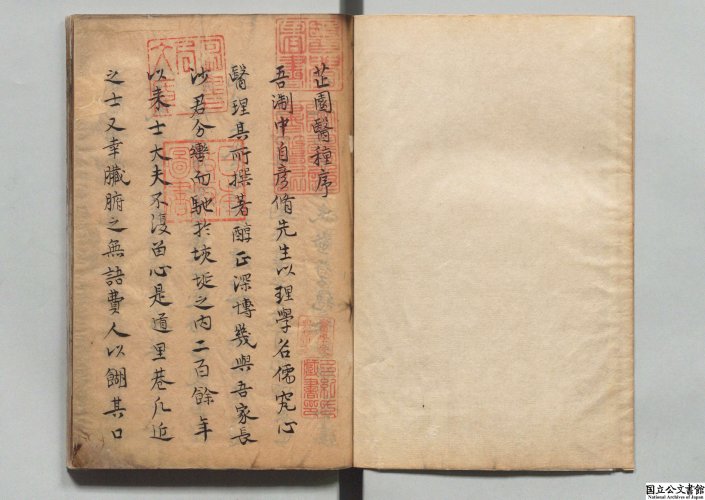 芷園醫種序
吾淛中自彥脩先生以理學名儒究心
醫理其所撰著醇正深博幾與吾家長
沙君分轡而馳於坱圠之内二百餘年
以来士大夫不復留心是道里巷凡近
之士又幸臓腑之無語費人以餬其口
国立公文書館
National Archives of Japan